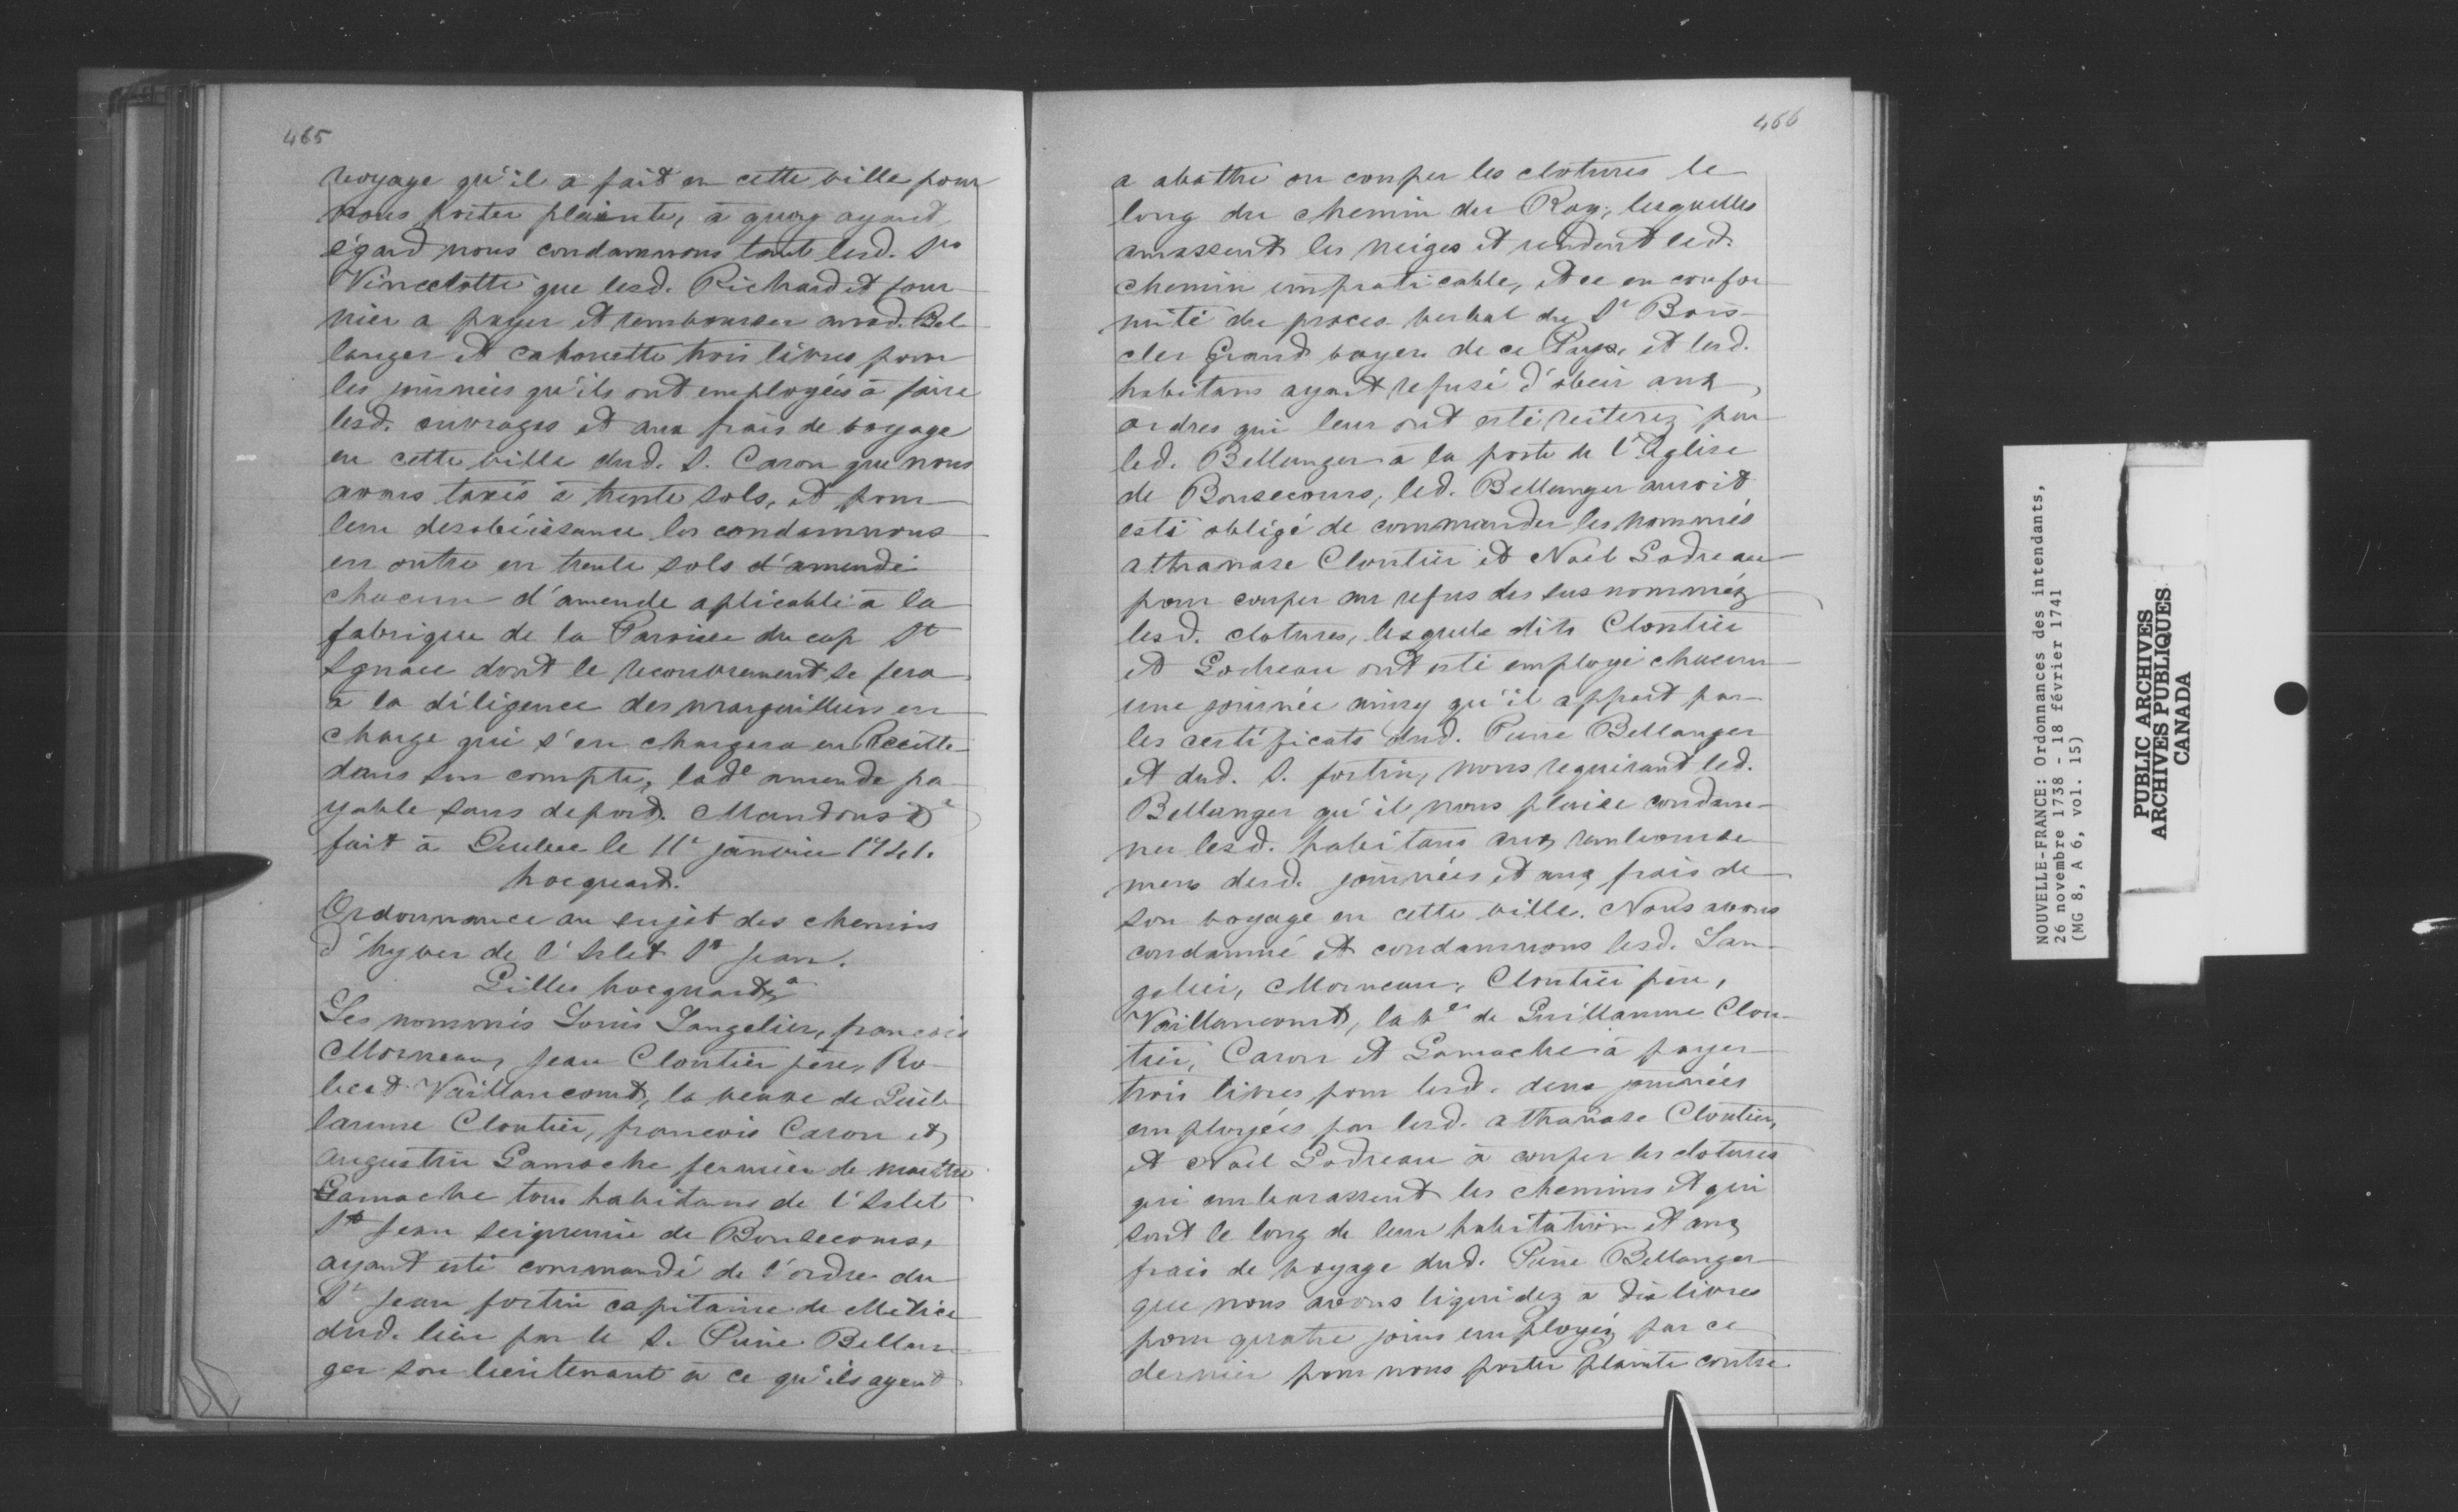 465
voyage qu'il a fait en cette ville pour
nous porter plainte, à quoy ayant
égard nous condamnons tant lesd. Srs
Vincelotte que lesd. Richard et four
nier a payer et rembourser aud. Bel
langer et cahouette trois livres pour
les journées qu'ils ont employées à faire
lesd. ouvrages et aux frais de voyage
en cette ville dud. S. Caron que nous
avons taxés à trente sols, et pour
leur desobéissance les condamnons
en outre en trente sols d'amende
chacun d'amende aplicable à la
fabrique de la Paroisse du cap St
Ignace dont le recouvrement se fera
à la diligence des marguilliers en
charge qui s'en chargera en Recette
dans son compte, lade amende pa
yable sans deport. Mandons &a
fait à Quebec le 11e janvier 1741.
hocquart.
Ordonnance au sujet des chemins
d'hyver de l'Islet St Jean.
Gilles hocquart &a
Les nommés Louis Langelier, francois
Morneau, Jean Cloutier père, Ro-
bert Vaillancourt, la veuve de Guil
laume Cloutier, francois Caron et
augustin Gamache fermier de maitre
Gamache tous habitans de l'Islet
St Jean seigneurie de Bonsecours,
ayant esté commandé de l'ordre du
Sr Jean fortin capitaine de Milice
dud. lieu par le S. Pierre Bellan-
ger son lieutenant à ce qu'ils ayent
466
a abattre ou couper les clotures le
long du chemin du Roy, lesquelles
amassent les neiges et rendent led.
chemin impraticable, et ce en confor
mité du proces verbal du Sr Bois-
cler Grand voyer de ce Pays, et lesd.
habitans ayant refusé d'obeir aux
ordres qui leur ont esté reiterez par
led. Bellanger à la porte de l'Eglise
de Bonsecours, led. Bellanger auroit
esté obligé de commander les nommés
athanase Cloutier et Noël Godreau
pour couper au refus des sus nommés
lesd. clotures, lesquels dits Cloutier
et Godreau ont esté employé chacun
une journée ainsy qu'il appert par
les certificats dud. Pierre Bellanger
et dud. S. fortin, nous requirant led.
Bellanger qu'il nous plaise condam-
ner lesd. habitans aux rembourse
mens desd. journées et aux frais de
son voyage en cette ville. Nous avons
condamné et condamnons lesd. Lan-
gelier, Morneau, Cloutier père,
Vaillancourt, la ve de Guillaume Clou-
tier, Caron et Gamache à payer
trois livres pour lesd. deux journées
employées par lesd. athanase Cloutier,
et Noël Godreau à couper les clotures
qui embarassent les chemins et qui
sont le long de leur habitation et aux
frais de voyage dud. Pierre Bellanger
que nous avons liquidez à dix livres
pour quatre jours employés par ce
dernier pour nous porter plainte contre
NOUVELLE-FRANCE: Ordonnances des intendants,
26 novembre 1738 - 18 février 1741
(MG 8, A 6, vol. 15)
PUBLIC ARCHIVES
ARCHIVES PUBLIQUES
CANADA